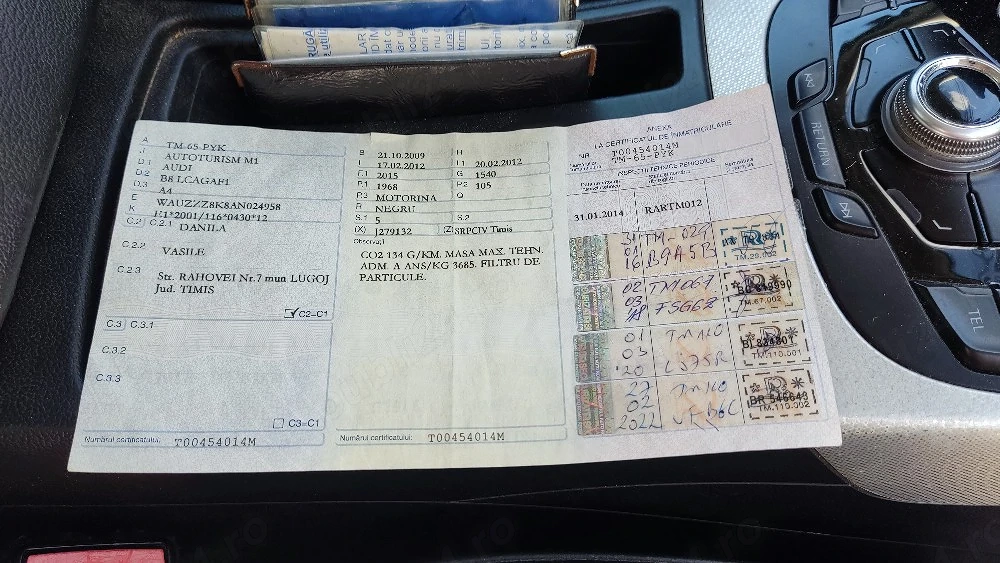 A TM-65-PYK
J AUTOTURISM M1
D.1 AUDI
D.2 B8 LCAGAF1
D.3 A4
E WAUZZZ8K8AN024958
K E1*2001/116*0430*12
C.2 C.2.1 DANILA
C.2.2 VASILE
C.2.3 Str. RAHOVEI Nr.7 mun LUGOJ
Jud. TIMIS
C2=C1
C.3 C.3.1
C.3.2
C.3.3
C3=C1
Numărul certificatului: T00454014M
B 21.10.2009 H
I 17.02.2012 I1 20.02.2012
F.1 2015 G 1540
P.1 1968 P.2 105
P.3 MOTORINA Q
R NEGRU
S.1 5 S.2
(X) J279132 (Z) SRPCIV Timis
Observații
CO2 134 G/KM. MASA MAX. TEHN.
ADM. A ANS/KG 3685. FILTRU DE
PARTICULE.
Numărul certificatului: T00454014M
ANEXA
LA CERTIFICATUL DE ÎNMATRICULARE
NR. T00454014M
TM-65-PYK
INSPECȚII TEHNICE PERIODICE
31.01.2014 RARTM012
31 TM-029
01 B9A5B
16
TM.29.002
02 TM067
03 FSG6Z
18
TM.67.002
01 TM110
03 LS75R
20
BI 834801
TM.110.501
27 TM110
02
2022
BR 546643
TM.110.002
RETURN
TEL